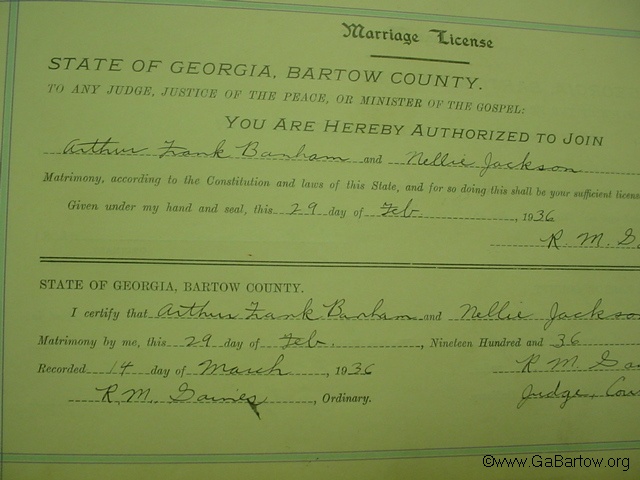 Marriage License
STATE OF GEORGIA, BARTOW COUNTY.
TO ANY JUDGE, JUSTICE OF THE PEACE, OR MINISTER OF THE GOSPEL:
YOU ARE HEREBY AUTHORIZED TO JOIN
Arthur Frank Banham and Nellie Jackson
Matrimony, according to the Constitution and laws of this State, and for so doing this shall be your sufficient licens
Given under my hand and seal, this 29 day of Feb, 1936
R. M. G
STATE OF GEORGIA, BARTOW COUNTY.
I certify that Arthur Frank Banham and Nellie Jackso
Matrimony by me, this 29 day of Feb., Nineteen Hundred and 36
Recorded 14 day of March, 1936 R M Ga
R. M. Gaines, Ordinary. Judge, Cou
©www.GaBartow.org